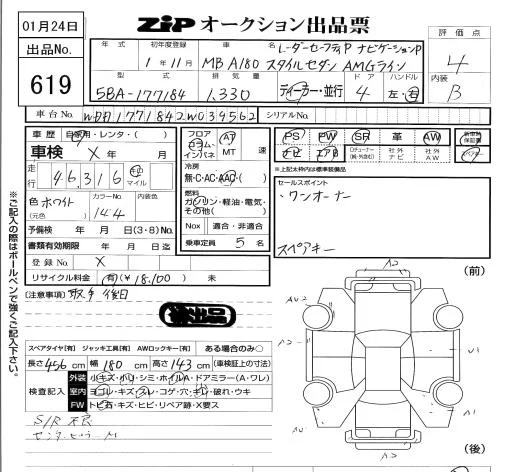 01月24日
出品No.
619
ZIP オークション出品票
年式 初年度登録 車名 レーダーセーフティP ナビゲーションP
1年11月 MB A180 スタイルセダン AMGライン
型式 排気量 ドア ハンドル
5BA-177184 1,330 ディーラー・並行 4 左・右
評価点
4
内装
B
車台No. WDD1771842W039562 シリアルNo.
車歴 自家用・レンタ・( )
車検 X 年 月
走行 46,316 km マイル
色 ホワイト カラーNo. 144 内装色
(元色)
予備検 年 月 日(3・8)No.
書類有効期限 年 月 日迄
登録No. X
リサイクル料金 (有)(¥18,100) 未
フロア コラム・インパネ AT MT 速
冷房 無・C・AC・AAC・( )
燃料 ガソリン・軽油・電気・その他( )
Nox 適合・非適合
乗車定員 5 名
PS PW SR 革 AW 新車時保証書
ナビ エアB 社外ナビ 社外AW
※上記太枠内は標準装備品
セールスポイント
・ワンオーナー
スペアキー
[注意事項] 取手後日
検出品
スペアタイヤ[有] ジャッキ工具[有] AWロックキー[有] ある場合のみ○
長さ 456 cm 幅 180 cm 高さ 143 cm (車検証上の寸法)
検査記入
外装 小キズ・小U・シミ・ホイルA・ドアミラー(A・ワレ)
室内 ヨゴレ・キズ・スレ・コゲ・穴・キレ・破れ・ウキ
FW トビ石・キズ・ヒビ・リペア跡・X要ス
※ご記入の際はボールペンで強くご記入下さい。
(前)
(後)
A2
A2
A2